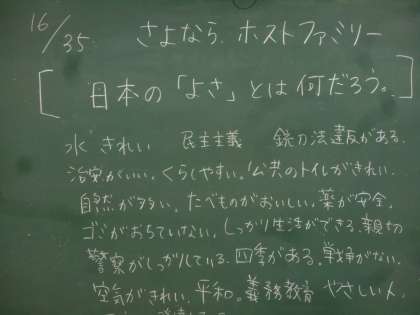 16/35 さよなら、ホストファミリー
[日本の「よさ」とは何だろう。]
水きれい 民主主義 銃刀法違反がある。
治安がいい。くらしやすい。公共のトイレがきれい。
自然が多い。たべものがおいしい。薬が安全。
ゴミがおちていない。しっかり生活ができる。親切
警察がしっかりしている。四季がある。戦争がない。
空気がきれい。平和。義務教育 やさしい人。